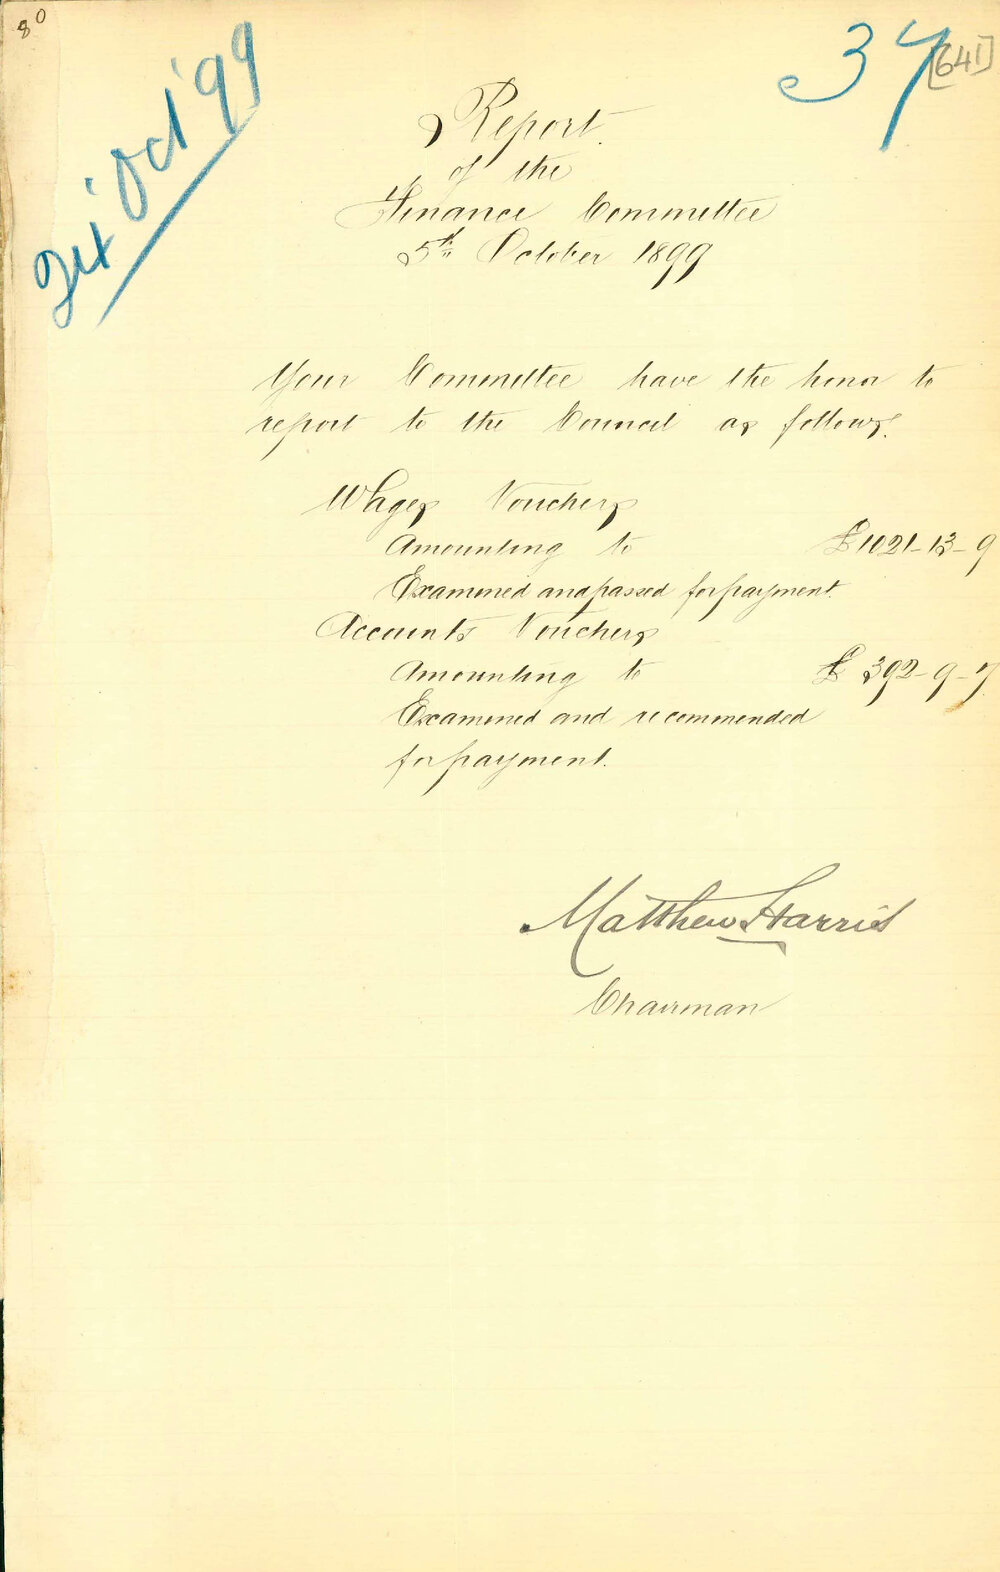 80
37
[641]
Oct '99
Report
of the
Finance Committee
5th October 1899
Your Committee have the honor to
report to the Council as follows.
Wages Vouchers
Amounting to £1021-13-9
Examined and passed for payment.
Accounts Vouchers
Amounting to £392-9-7
Examined and recommended
for payment.
Matthew Harris
Chairman